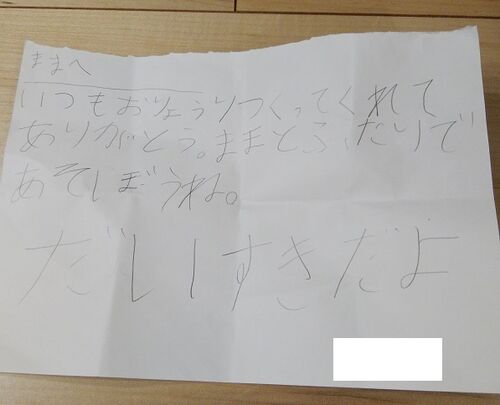 ままへ
いつもおりょうりつくってくれて
ありがとう。ままとふたりで
あそしぼうね。
だいすきだよ